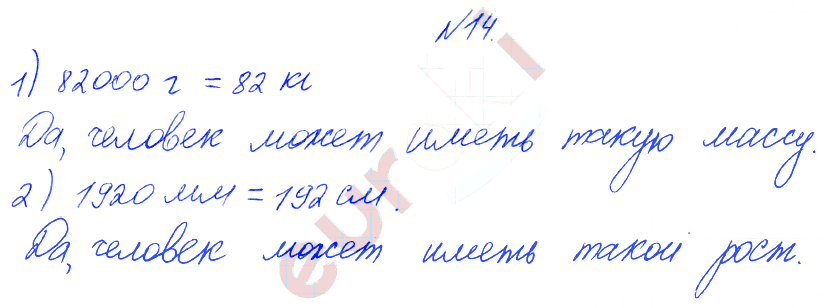 №14.
1) 82000 г = 82 кг
Да, человек может иметь такую массу.
2) 1920 мм = 192 см.
Да, человек может иметь такой рост.
euroki